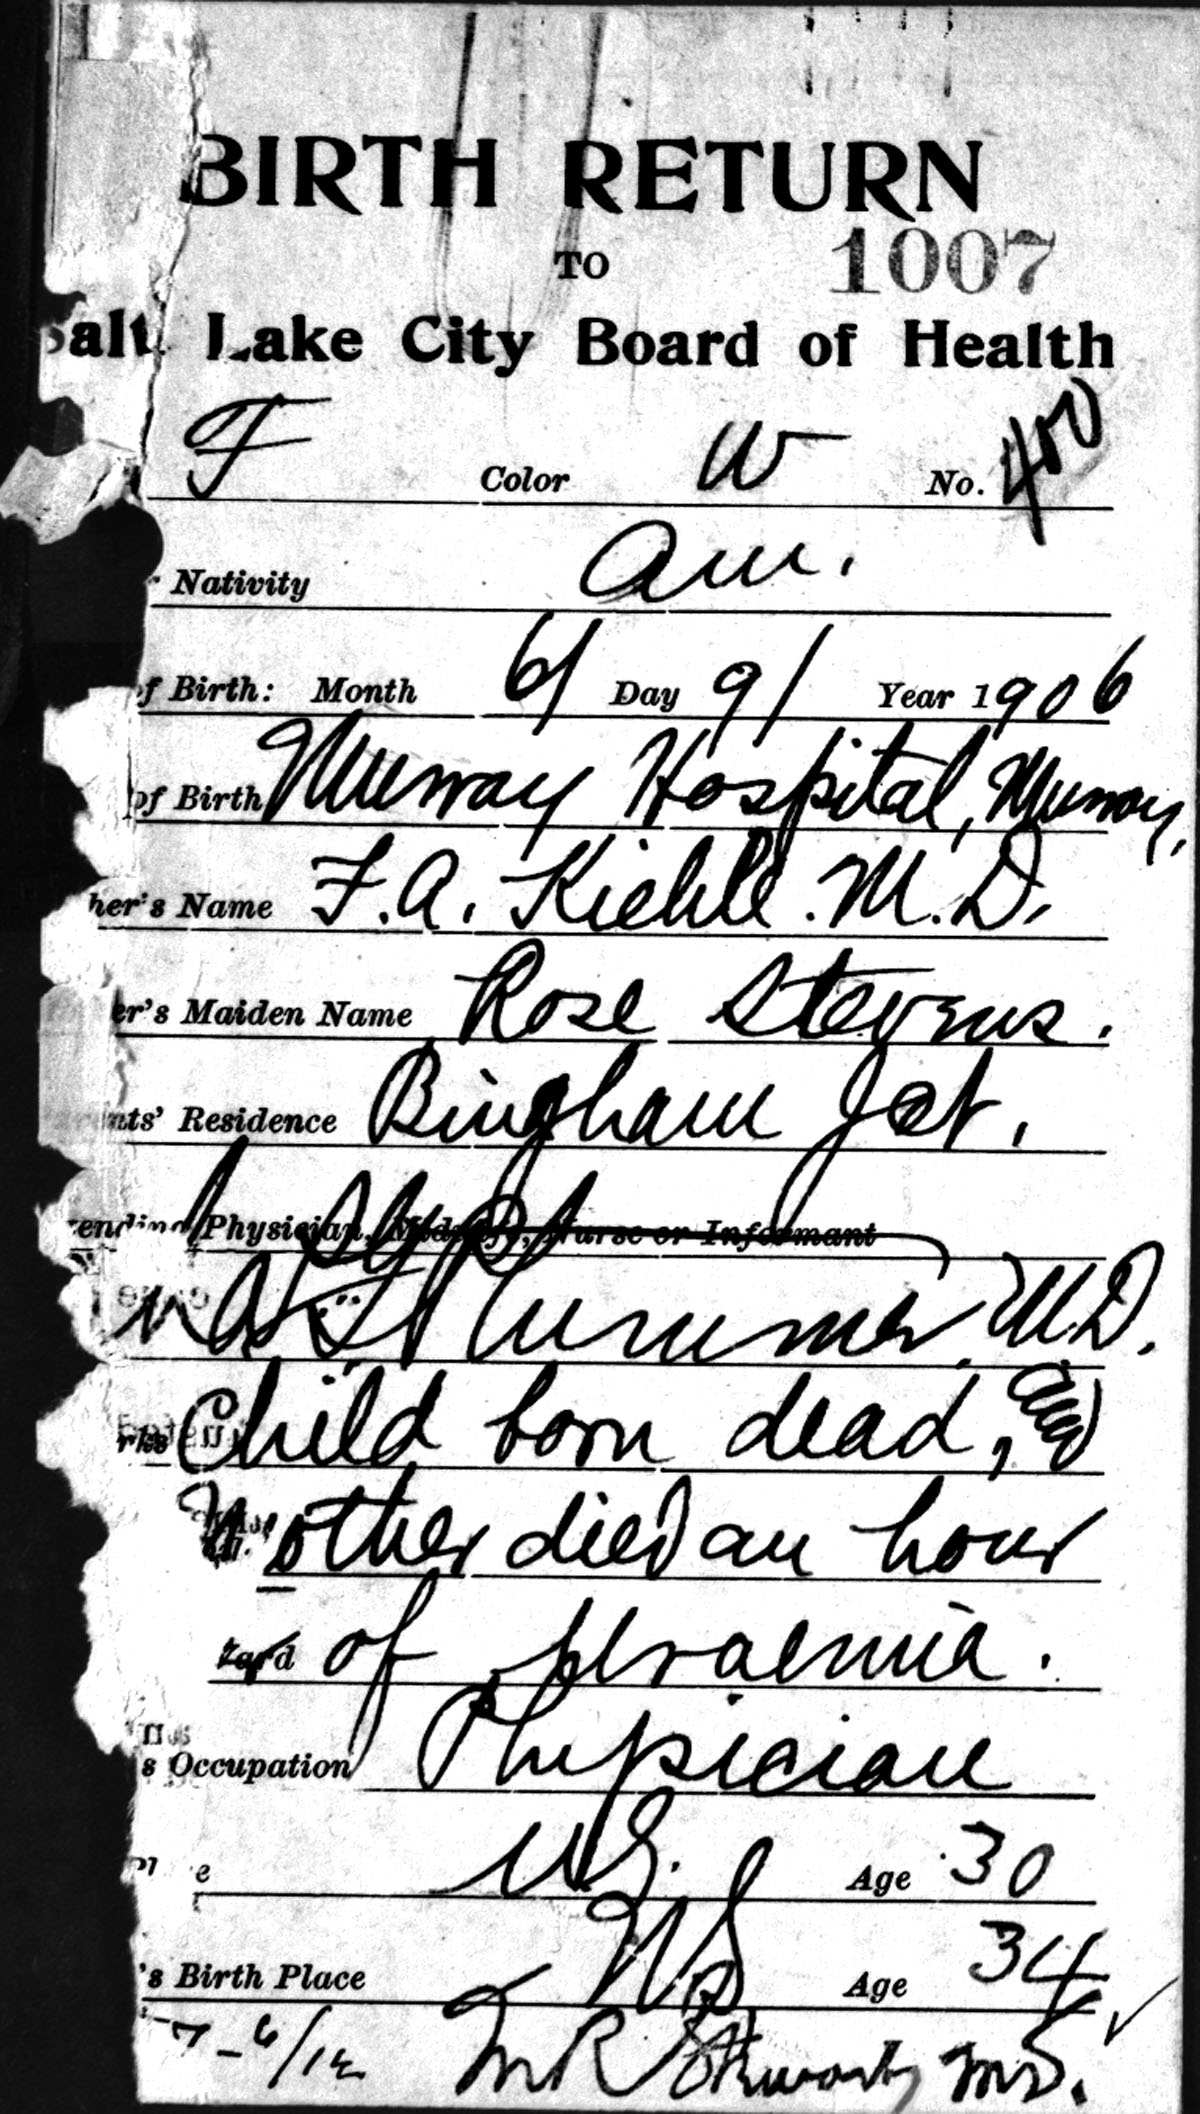 BIRTH RETURN
TO 1007
Salt Lake City Board of Health
F Color W No. 400
Nativity Am.
of Birth: Month 6/ Day 9/ Year 1906
of Birth Murray Hospital, Murray,
her's Name F. A. Kiehle. M.D.
er's Maiden Name Rose Stevens.
nts' Residence Bingham Jct.
tending Physician, Midwife, Nurse or Informant
M.D.
rks Child born dead, and
Mother died an hour
of Uraemia.
s Occupation Physician
U.S. Age 30
's Birth Place U.S. Age 34